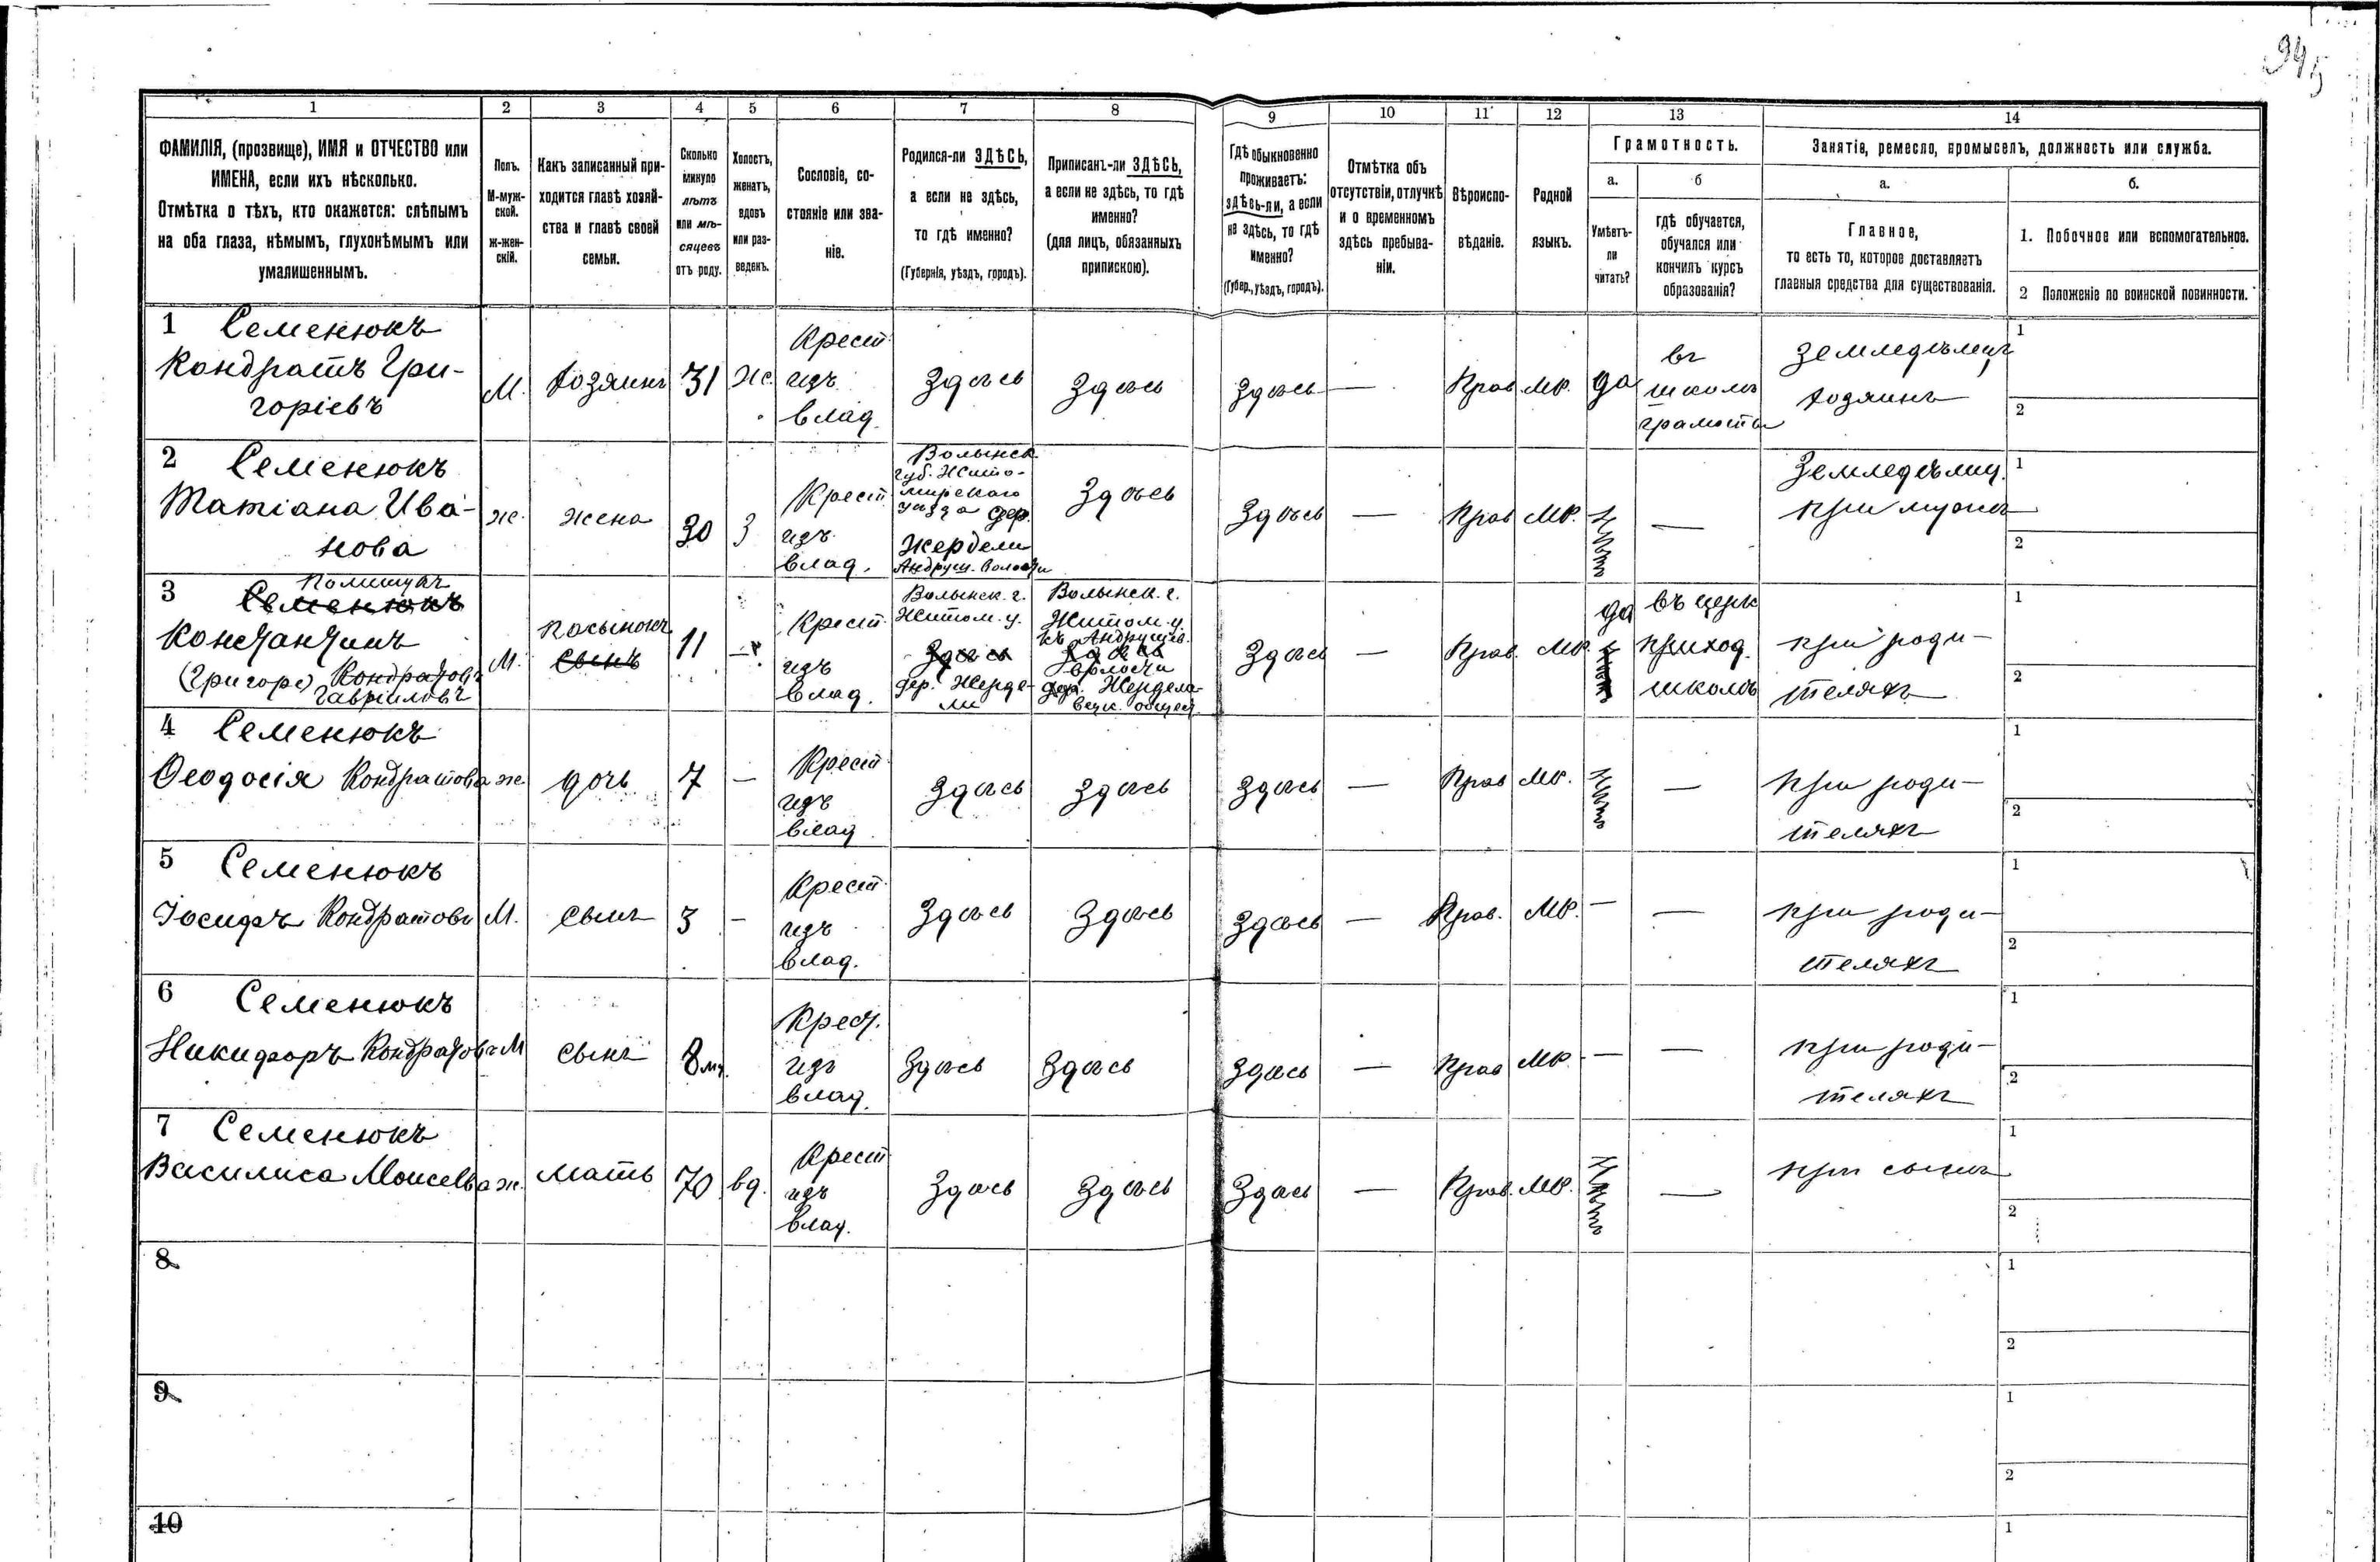 945
1 2 3 4 5 6 7 8 9 10 11 12 13 14
ФАМИЛІЯ, (прозвище), ИМЯ и ОТЧЕСТВО или
ИМЕНА, если ихъ нѣсколько.
Отмѣтка о тѣхъ, кто окажется: слѣпымъ
на оба глаза, нѣмымъ, глухонѣмымъ или
умалишеннымъ.
Полъ.
М-муж-
ской.
ж-жен-
скій.
Какъ записанный при-
ходится главѣ хозяй-
ства и главѣ своей
семьи.
Сколько
минуло
лѣтъ
или мѣ-
сяцевъ
отъ роду.
Холостъ,
женатъ,
вдовъ
или раз-
веденъ.
Сословіе, со-
стояніе или зва-
ніе.
Родился-ли ЗДѢСЬ,
а если не здѣсь,
то гдѣ именно?
(Губернія, уѣздъ, городъ).
Приписанъ-ли ЗДѢСЬ,
а если не здѣсь, то гдѣ
именно?
(для лицъ, обязанныхъ
припискою).
Гдѣ обыкновенно
проживаетъ:
здѣсь-ли, а если
не здѣсь, то гдѣ
именно?
(Губер., уѣздъ, городъ).
Отмѣтка объ
отсутствіи, отлучкѣ
и о временномъ
здѣсь пребыва-
ніи.
Вѣроиспо-
вѣданіе.
Родной
языкъ.
Грамотность.
а.
Умѣетъ-
ли
читать?
б
гдѣ обучается,
обучался или
кончилъ курсъ
образованія?
Занятіе, ремесло, промыселъ, должность или служба.
а.
Главное,
то есть то, которое доставляетъ
главныя средства для существованія.
б.
1. Побочное или вспомогательное.
2 Положеніе по воинской повинности.
1 Семенюкъ
Кондратъ Гри-
горіевъ
М.
хозяинъ
31
Ж.
Крест
изъ
влад.
Здѣсь
Здѣсь
Здѣсь
—
Прав
Мр.
да
въ
школѣ
грамоты
земледѣлецъ
хозяинъ
1
2
2 Семенюкъ
Татіана Ива-
нова
ж.
жена
30
З
Крест
изъ
влад.
Волынск
губ. Жито-
мирскаго
уѣзда дер.
Жердели
Андруш. Волости
Здѣсь
Здѣсь
—
Прав
Мр.
нѣтъ
—
Земледѣлец.
при мужѣ
1
2
3 Полищукъ
Семенюкъ
Константинъ
(Григоре) Кондратов
Гавріиловъ
М.
пасынокъ
сынъ
11
—
Крест.
изъ
влад.
Волынск. г.
Житом. у.
Здѣсь
дер. Жерде-
ли
Волынск. г.
Житом. у.
къ Андрушев.
Здѣсь
волости
Жердела-
вск. общест
Здѣсь
—
Прав.
Мр.
да
нѣтъ
въ церк
приход.
школѣ
при роди-
теляхъ
1
2
4 Семенюкъ
Ѳеодосія Кондратова
ж.
дочь
7
—
Крест
изъ
влад
Здѣсь
Здѣсь
Здѣсь
—
Прав
Мр.
нѣтъ
—
при роди-
теляхъ
1
2
5 Семенюкъ
Іосифъ Кондратовъ
М.
сынъ
3
—
Крест
изъ
влад.
Здѣсь
Здѣсь
Здѣсь
—
Прав.
Мр.
—
—
при роди-
теляхъ
1
2
6 Семенюкъ
Никифоръ Кондратовъ
М
сынъ
8 м.
Крест.
изъ
влад.
Здѣсь
Здѣсь
Здѣсь
—
Прав
Мр.
—
—
при роди-
теляхъ
1
2
7 Семенюкъ
Василиса Моисеева
ж.
мать
70
вд.
Крест
изъ
влад.
Здѣсь
Здѣсь
Здѣсь
—
Прав.
Мр.
нѣтъ
—
при сынѣ
1
2
8
1
2
9
1
2
10
1